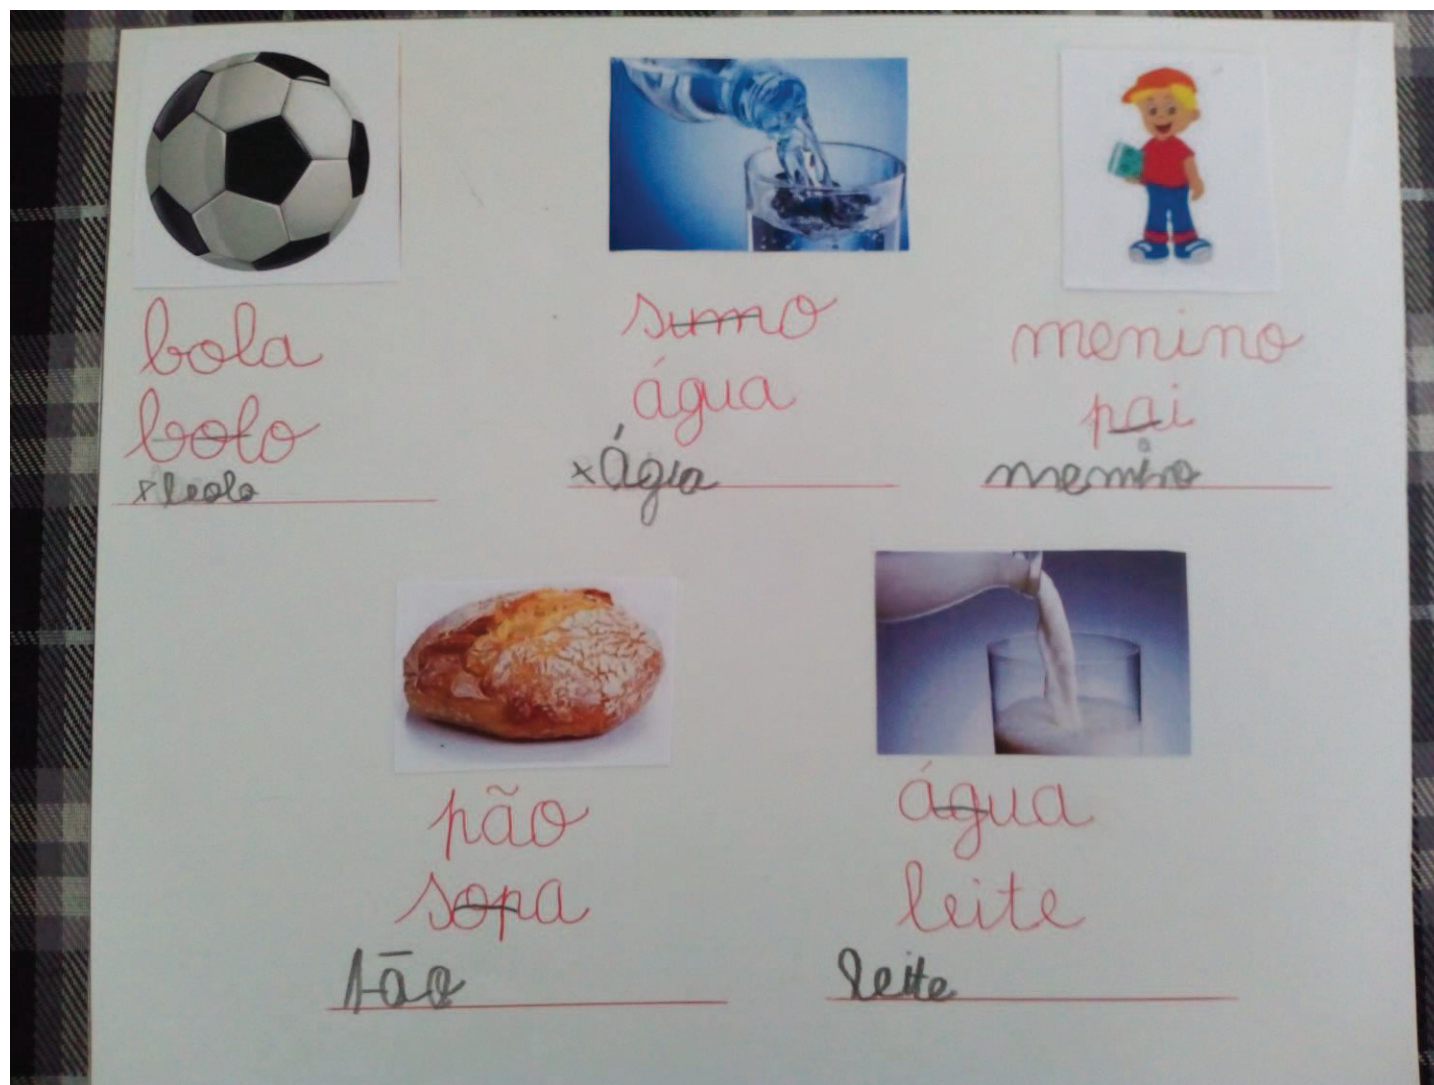 bola
bolo
x bola
sumo
água
x Água
menino
pai
menino
pão
sopa
pão
água
leite
leite